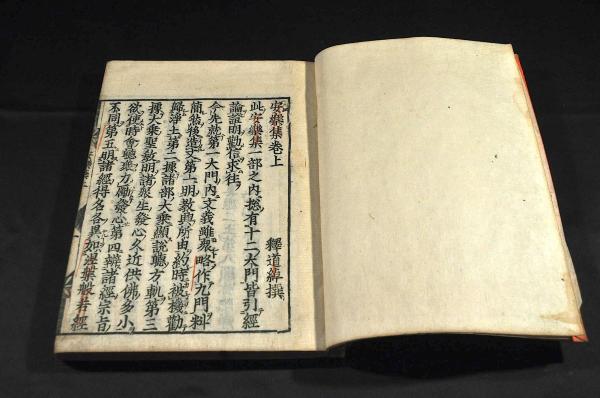 安樂集卷上
釋道綽撰
此安樂集一部之内揔有十二大門皆引經
論證明勸信求往
今先就第一大門内文義雖衆略作九門料
簡然後造文第一明教興所由約時被機勸
歸淨土第二據諸部大乘顯說聽方軌第三
據大乘聖教明諸衆生發心久近供佛多少
欲使時會聽衆力勵發心第四辯諸經宗旨
不同第五明諸經得名各異如涅槃般若經